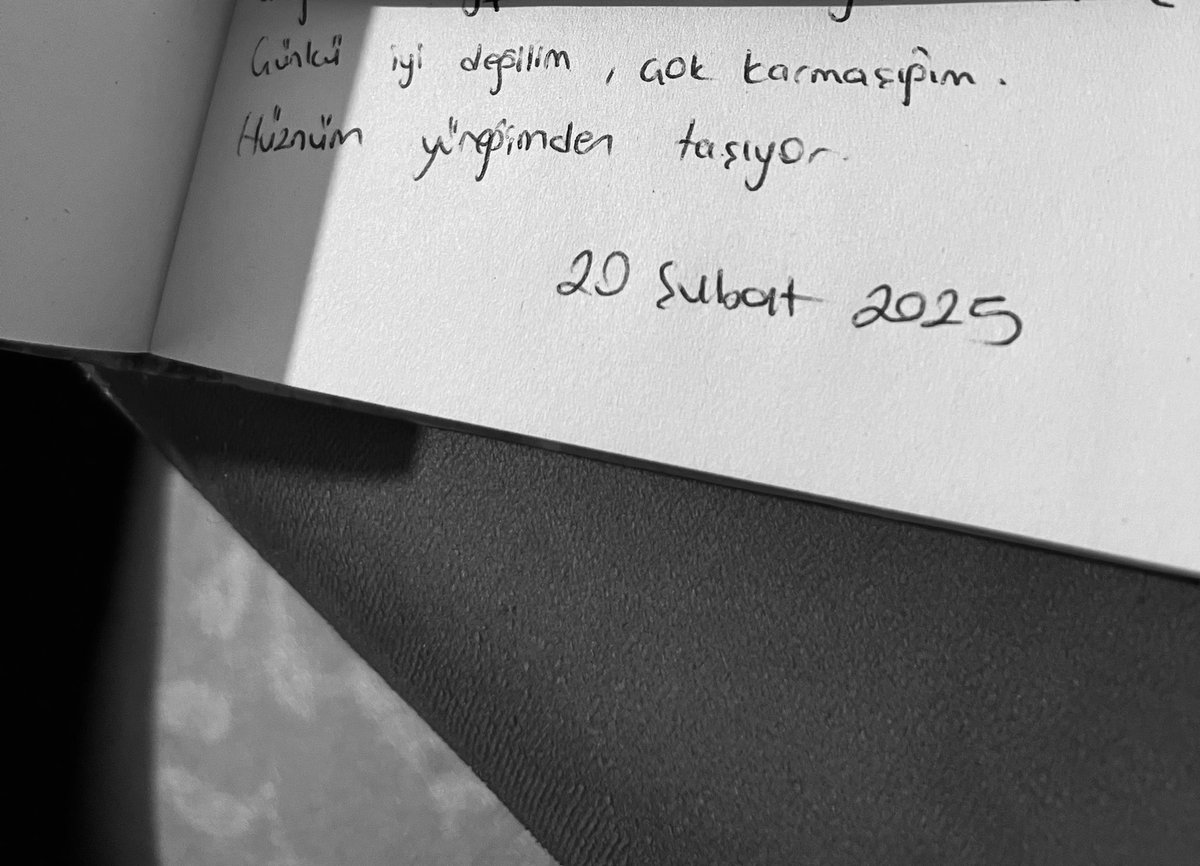 Çünkü iyi değilim, çok karmaşığım.
Hüznüm yüreğimden taşıyor.
20 Şubat 2025